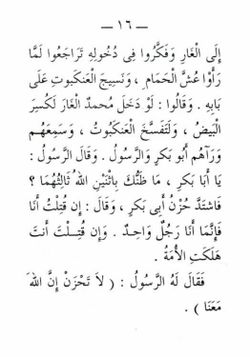 — ١٦ —
إِلَى الْغَارِ وَفَكَّرُوا فِى دُخُولِهِ تَرَاجَعُوا لَمَّا
رَأَوْا عُشَّ الْحَمَامِ ، وَنَسِيجَ الْعَنْكَبوتِ عَلَى
بَابِهِ . وَقَالُوا : لَوْ دَخَلَ مُحمدٌ الْغَارَ لَكُسِرَ
الْبَيْضُ ، وَلَتَفَسَّخَ الْعَنْكَبُوتُ ، وَسَمِعَهُم
وَرَآهُم أَبُو بَكرٍ وَالرَّسُولُ . وَقَالَ الرَّسُولُ :
يَا أَبَا بَكرٍ ، مَا ظَنُّكَ بِاثْنَيْنِ اللهُ ثَالِثُهُمَا ؟
فَاشتَدَّ حُزْنُ أَبِى بَكرٍ ، وَقَالَ : إِن قُتِلْتُ أَنَا
فَإِنَّمَا أَنَا رَجُلٌ وَاحِدٌ . وَإِن قُتِلْتَ أَنتَ
هَلَكَتِ الأُمَّةُ .
فَقَالَ لَهُ الرَّسُولُ : ( لاَ تَحْزَنْ إِنَّ اللهَ
مَعَنَا ) .